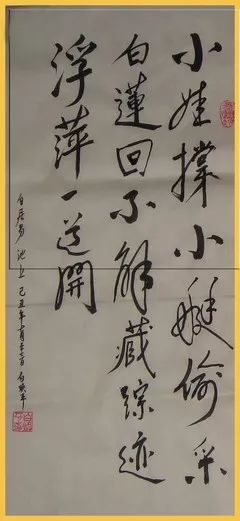 小娃撑小艇偷采
白蓮回不解藏踪迹
浮萍一道開
白居易池上己丑年